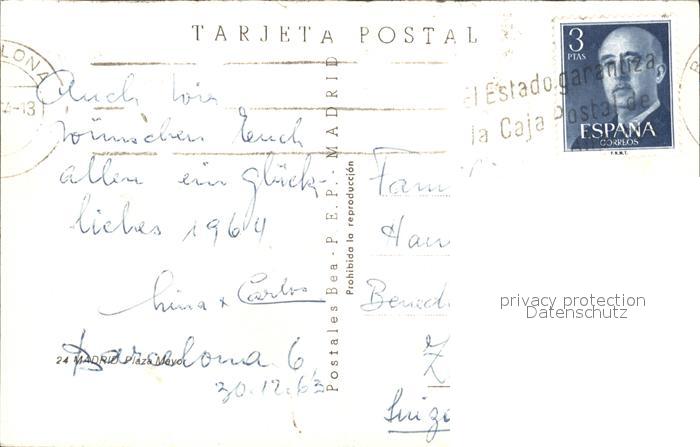 TARJETA POSTAL
LONA
-13
3
PTAS
ESPAÑA
CORREOS
F.N.M.T.
El Estado garantiza
la Caja Postal de
Auch wir
wünschen Euch
allen ein glück-
liches 1964
+ Carlos
Barcelona 6
30.12.63
24 MADRID Plaza Mayor
Postales Bea.- P.E.P. MADRID
Prohibida la reproducción
Fam
Han
Bened
Z
Suiz
privacy protection
Datenschutz